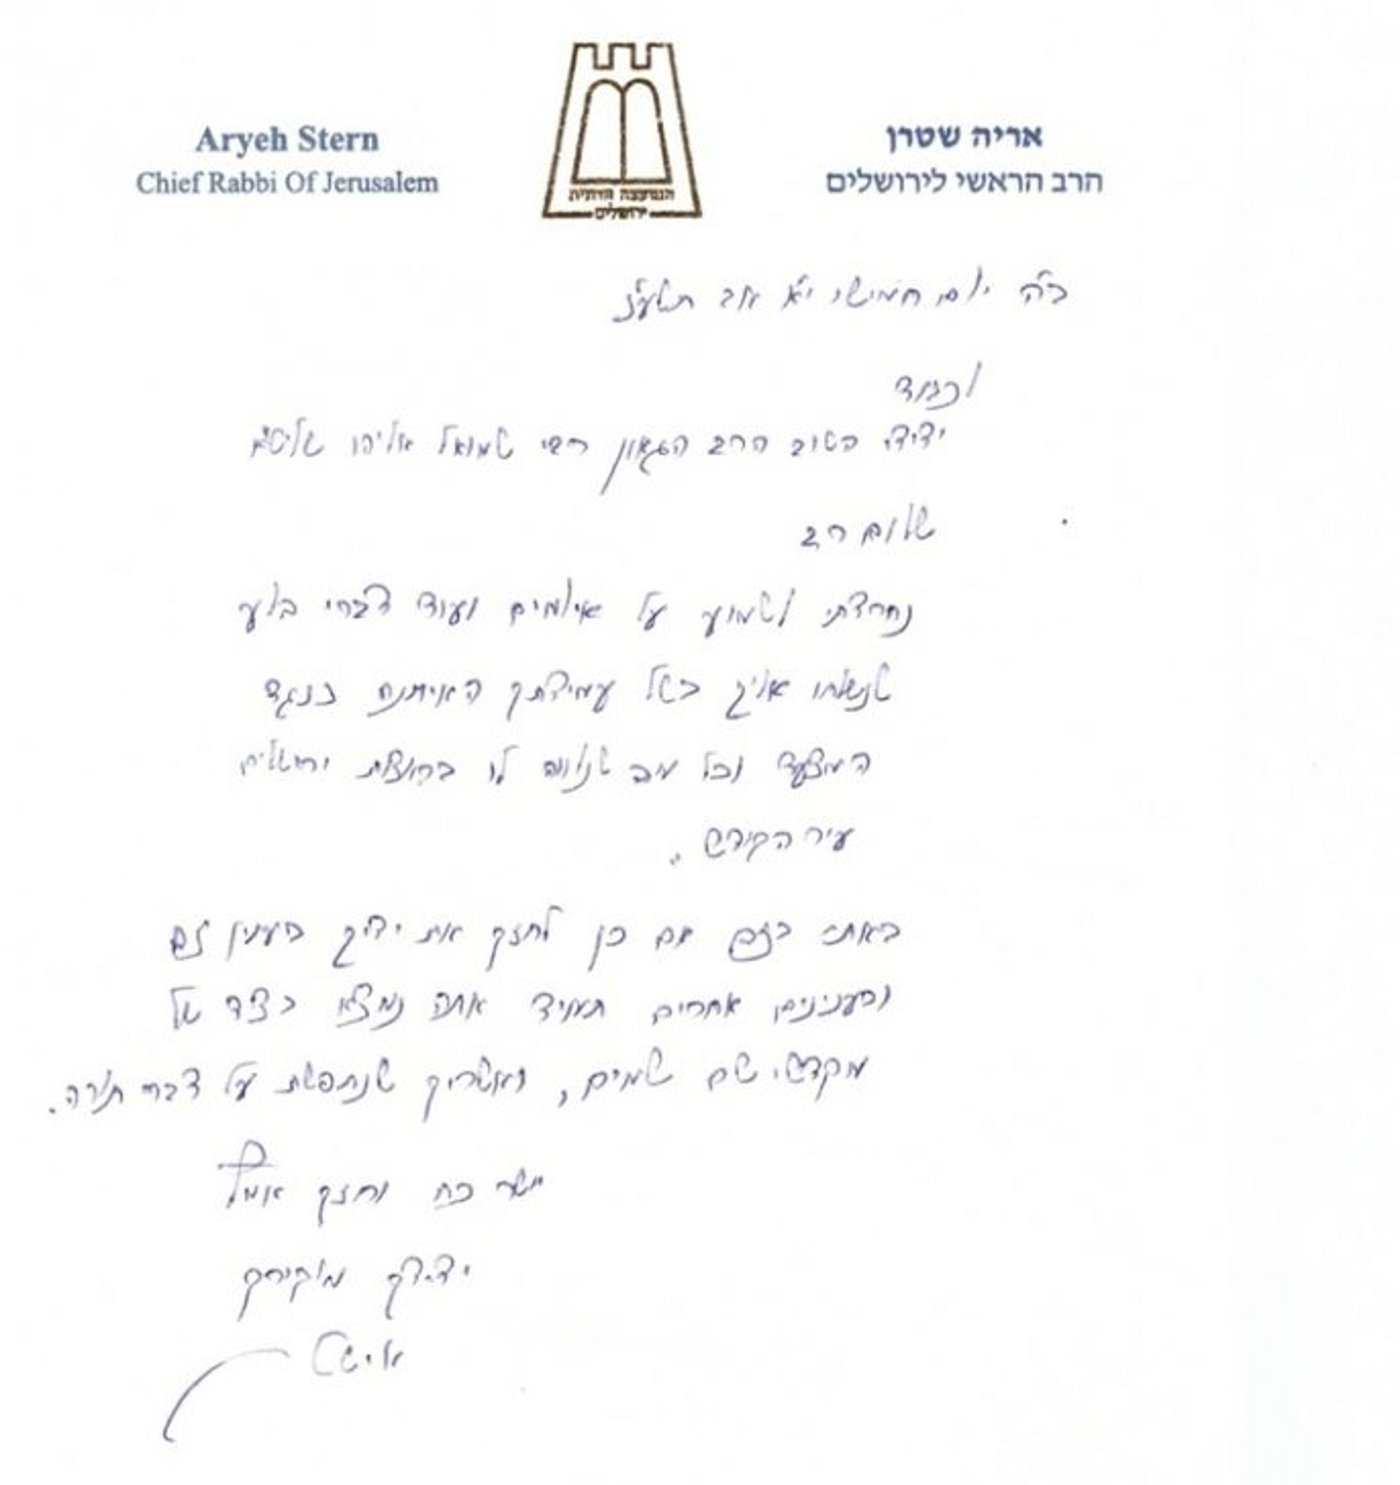 Aryeh Stern
Chief Rabbi Of Jerusalem
אריה שטרן
הרב הראשי לירושלים
המועצה הדתית
ירושלים
ב"ה יום חמישי י"א אב תשע"ז
לכבוד
ידידי הטוב הרב הגאון רבי שמואל אליהו שליט"א
שלום רב
נחרדתי לשמוע על איומים ועוד דברי בלע
שנשלחו אליך בשל עמידתך האיתנה כנגד
המצעד וכל מה שנלווה לו בחוצות ירושלים
עיר הקודש.
באתי בזה אם כן לחזק את ידיך בענין זה
ובענינים אחרים תמיד אתה נמצא בצד של
מקדשי שם שמים, ואשריך שנתפשת על דברי תורה.
יישר כח וחזק ואמץ
ידידך מוקירך